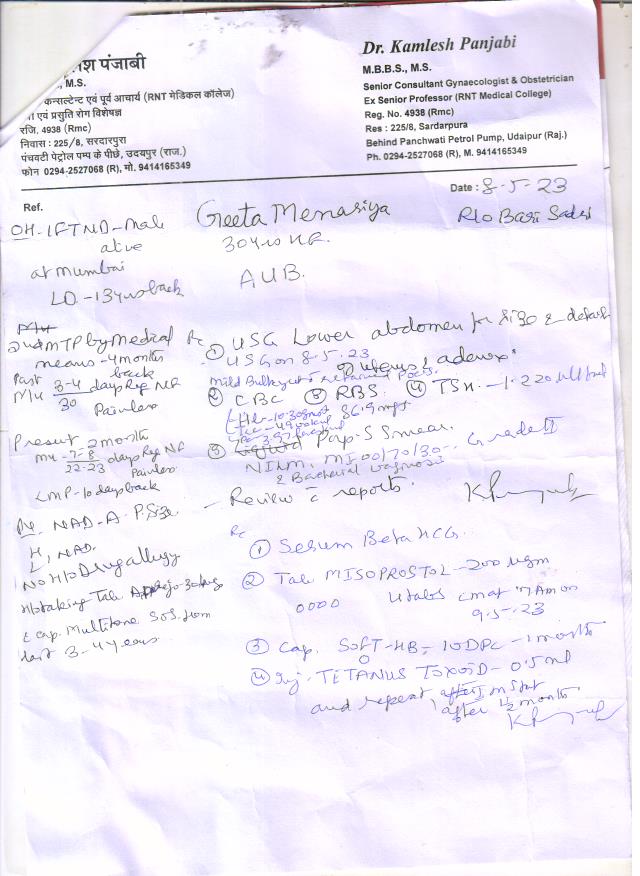 श पंजाबी
, M.S.
कन्सल्टेन्ट एवं पूर्व आचार्य (RNT मेडिकल कॉलेज)
एवं प्रसुति रोग विशेषज्ञ
रजि. 4938 (Rmc)
निवास : 225/8, सरदारपुरा
पंचवटी पेट्रोल पम्प के पीछे, उदयपुर (राज.)
फोन 0294-2527068 (R), मो. 9414165349
Dr. Kamlesh Panjabi
M.B.B.S., M.S.
Senior Consultant Gynaecologist & Obstetrician
Ex Senior Professor (RNT Medical College)
Reg. No. 4938 (Rmc)
Res : 225/8, Sardarpura
Behind Panchwati Petrol Pump, Udaipur (Raj.)
Ph. 0294-2527068 (R), M. 9414165349
Ref.
Date : 8-5-23
Geeta Menariya
R/o Bari Sadri
30
AUB.
OH-1FTND-Male
alive
at Mumbai
LD-13yrs back
MTP by Medical
means-4 month
back
Past
3-4 days Reg
30 Painless
Present 2 month
7-8 days Reg
22-23 Painless
LMP-10 days back
NAD-A P. Size
H, NAD.
L,
No H/o Drug allergy
taking Tab.
Cap. Multitone SOS from
last 3-4 years
① USG Lower abdomen for size & detail
USG on 8-5-23
of uterus, adenexa
Mild Bulky
② CBC ③ RBS. ④ TSH -1.220
Hb-10.30
⑤ Pap's Smear. Grade II
NILM. MI 00/70/30
& Bacterial vaginosis
Review c reports.
Rc
① Serum Beta HCG.
② Tab MISOPROSTOL-200 ugm
0000 4 tabs at 7 AM on
9-5-23
③ Cap. SOFT-HB- 10DPC-1 month
④ Inj. TETANUS TOXOID- 0.5 ml
and repeat
after 1/2 month